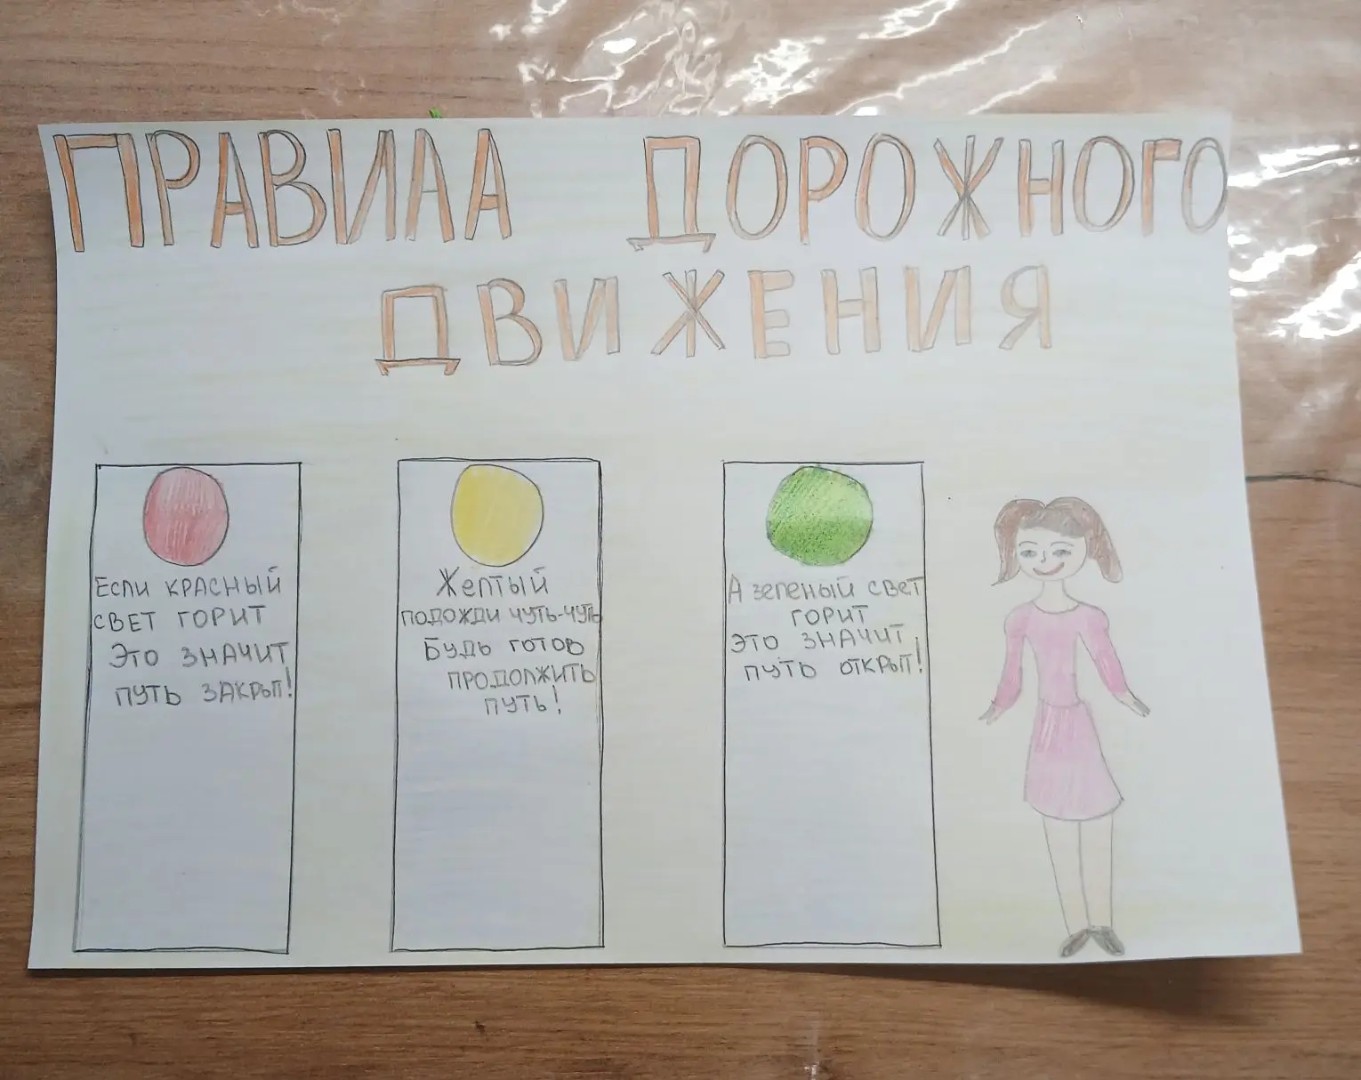 ПРАВИЛА ДОРОЖНОГО
ДВИЖЕНИЯ
Если красный
свет горит
Это значит
путь закрыт!
Желтый
подожди чуть-чуть
Будь готов
продолжить
путь!
А зеленый свет
горит
Это значит
путь открыт!